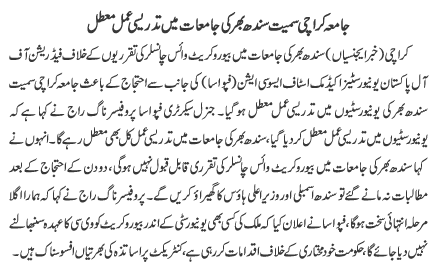 جامعہ کراچی سمیت سندھ بھر کی جامعات میں تدریسی عمل معطل
کراچی (خبر ایجنسیاں) سندھ بھر کی جامعات میں بیوروکریٹ وائس چانسلر کی تقرریوں کے خلاف فیڈریشن آف
آل پاکستان یونیورسٹیز اکیڈمک اسٹاف ایسوسی ایشن (فپواسا) کی جانب سے احتجاج کے باعث جامعہ کراچی سمیت
سندھ بھر کی یونیورسٹیوں میں تدریسی عمل معطل ہوگیا۔ جنرل سیکرٹری فپواسا پروفیسر ناگ راج نے کہا ہے کہ
یونیورسٹیوں میں تدریسی عمل معطل کر دیا گیا، سندھ بھر کی جامعات میں تدریسی عمل کل بھی معطل رہے گا۔ انہوں نے
کہا سندھ بھر کی جامعات میں بیوروکریٹ وائس چانسلر کی تقرری قابل قبول نہیں ہوگی، دو دن کے احتجاج کے بعد
مطالبات نہ مانے گئے تو سندھ اسمبلی اور وزیراعلی ہاؤس کا گھیراؤ کریں گے۔ پروفیسر ناگ راج نے کہا کہ ہمارا اگلا
مرحلہ انتہائی سخت ہوگا، فپواسا نے اعلان کیا کہ ملک کی کسی بھی یونیورسٹی کے اندر بیوروکریٹ کو وی سی کا عہدہ سنبھالنے
نہیں دیا جائے گا، حکومت خود مختاری کے خلاف اقدامات کر رہی ہے، کنٹریکٹ پر اساتذہ کی بھرتیاں افسوسناک ہیں۔